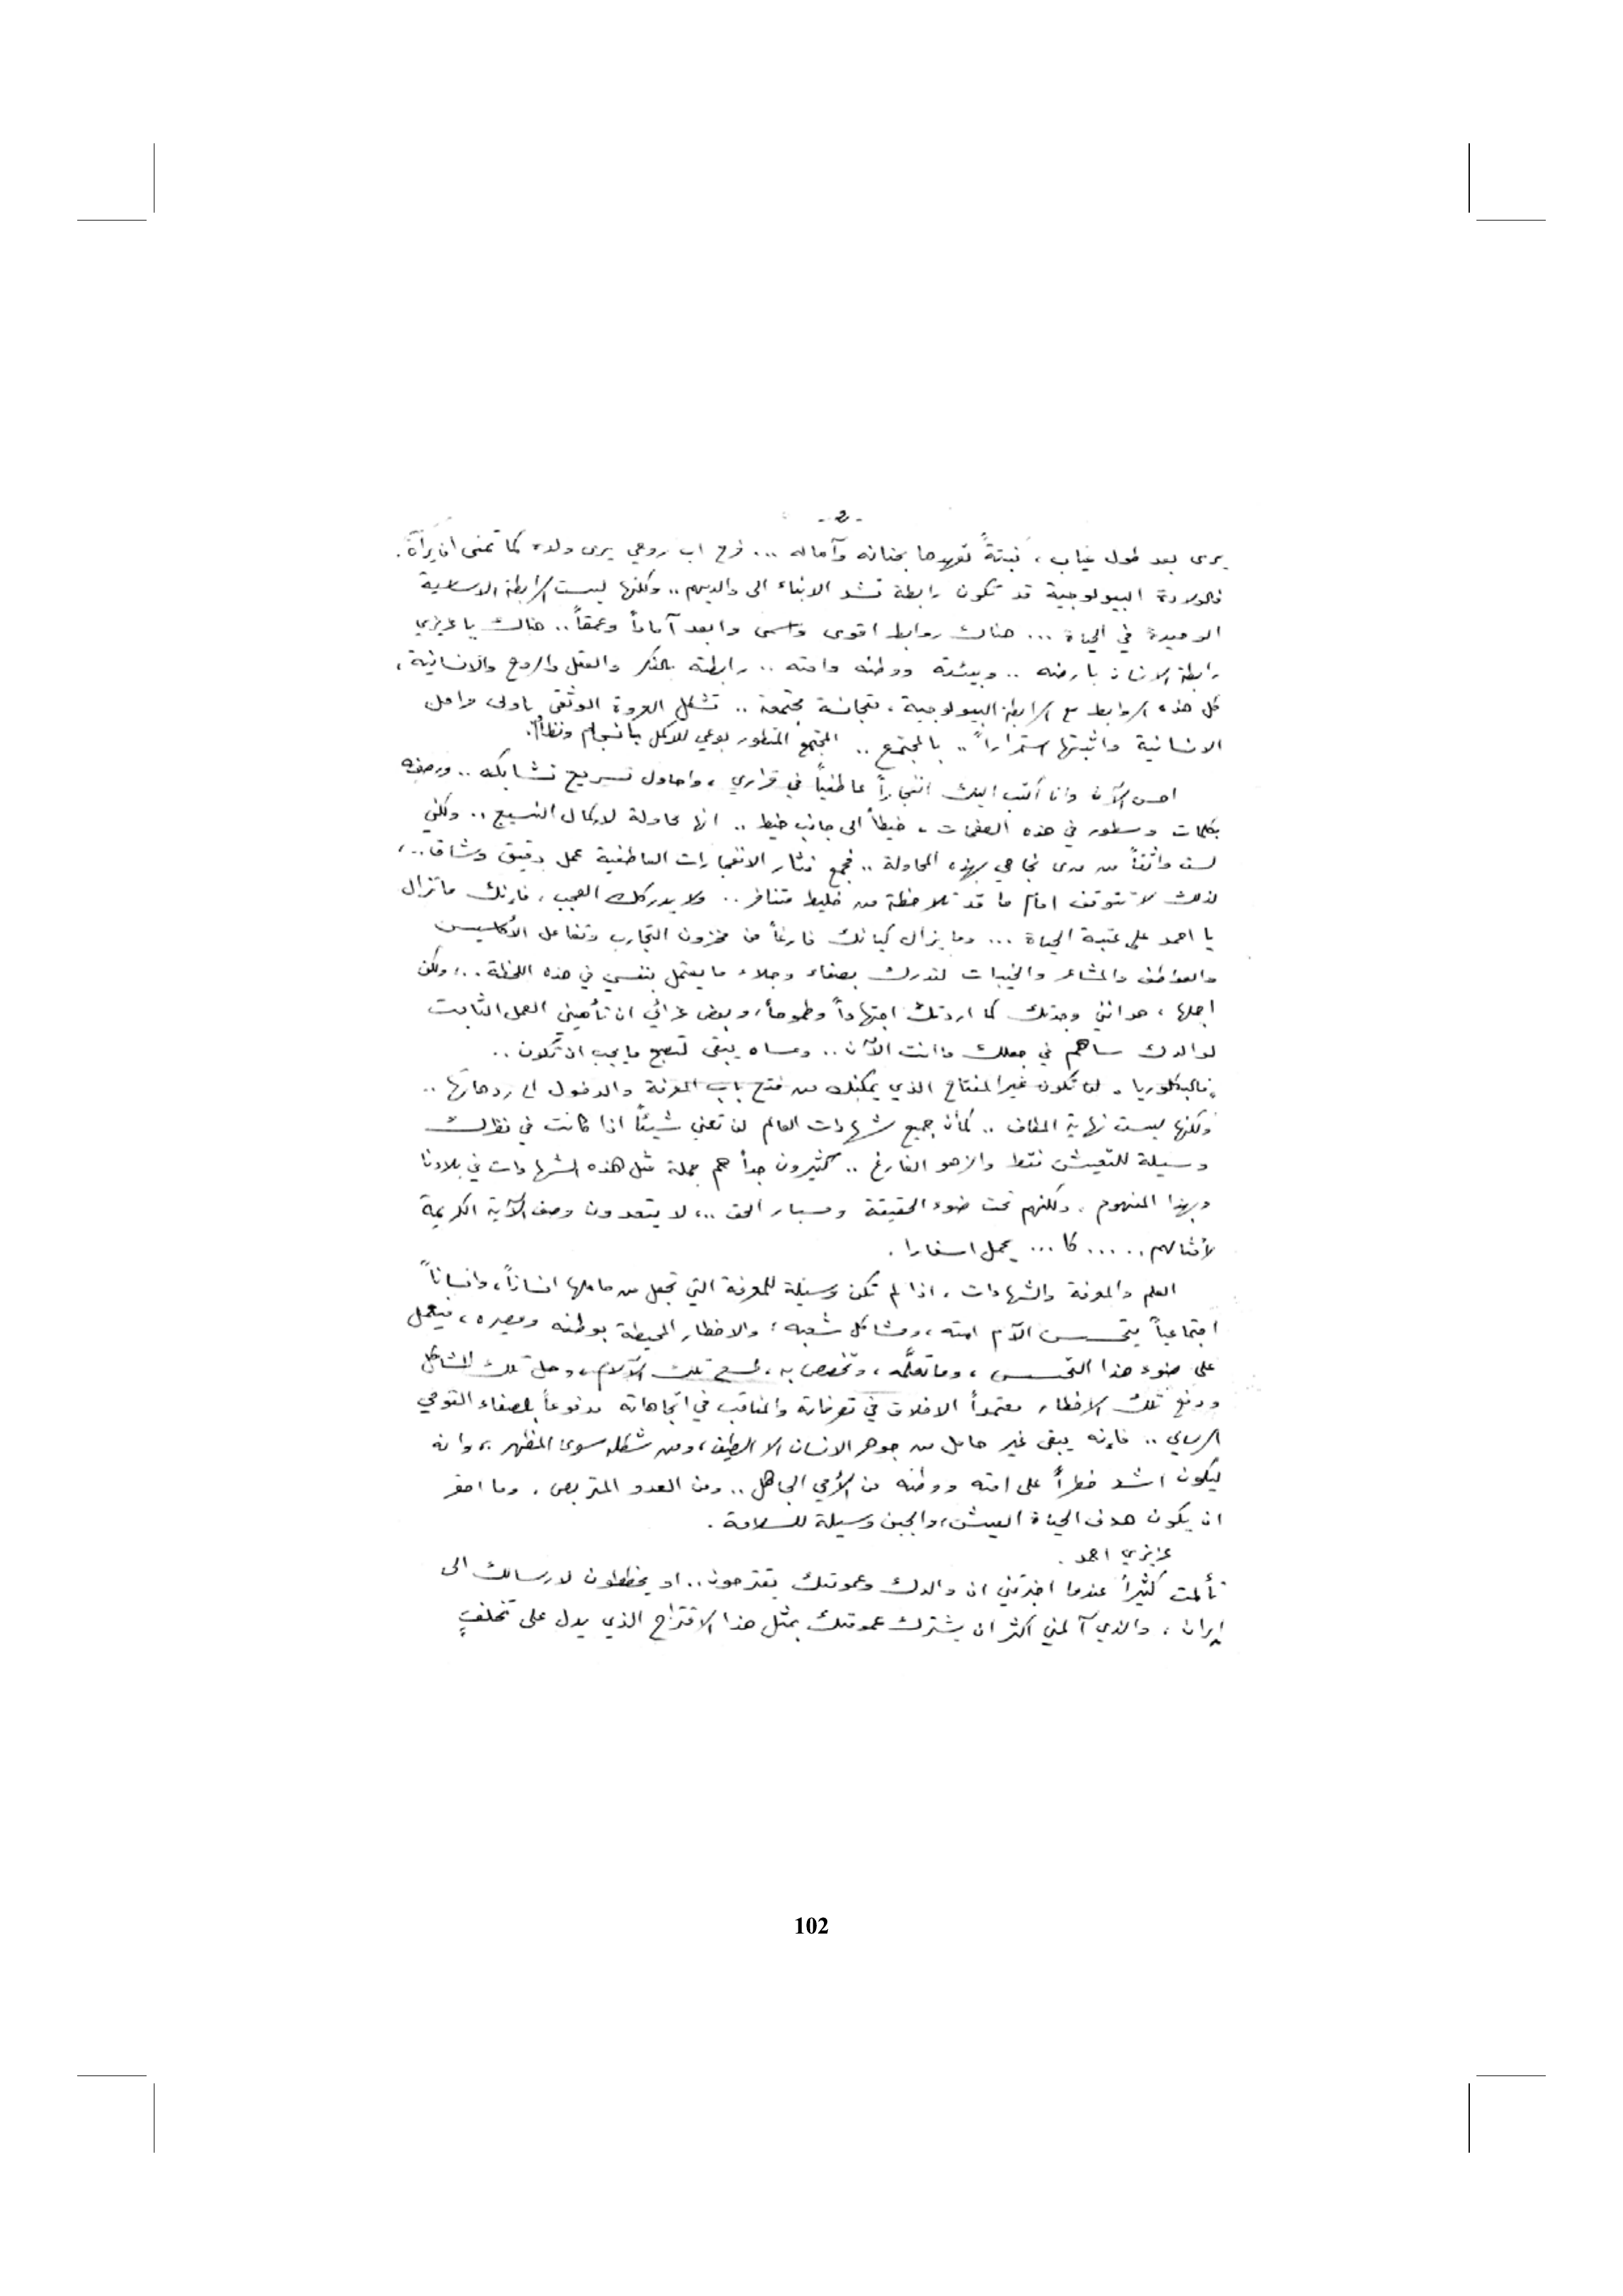 -2-
يرى بعد طول غياب، نبتةً تعهدها بحنانه وآماله ... فرح اب روحي يرى ولده كما تمنى ان يراه.
فالولادة البيولوجية قد تكون رابطة تشد الابناء الى والديهم .. ولكنها ليست الرابطة الاساسية
الوحيدة في الحياة ... هناك روابط اقوى واسمى وابعد آماداً وعمقاً .. هناك يا عزيزي
رابطة الانسان بارضه .. وبيئته ووطنه وامته .. رابطته بالفكر والعقل والروح والانسانية،
كل هذه الروابط مع الرابطة البيولوجية، متجانسة مجتمعة .. تشكل العروة الوثقى باولى مراحل
الانسانية واثبتها استمراراً .. بالمجتمع .. المجتمع المتطور بوعي للاكمل بانسجام ونظام.
احس الآن وانا أكتب اليك انفجاراً عاطفياً في قراري، واحاول تسريح تشابكه .. ورصفه
بكلمات وسطور في هذه الصفحات، خيطاً الى جانب خيط .. انها محاولة لاكمال النسيج .. ولكني
لست واثقاً من مدى نجاحي بهذه المحاولة .. فجمع نثار الانفجارات العاطفية عمل دقيق وشاق ..،
لذلك لا تتوقف امام ما قد تلاحظه من خليط متنافر .. ولا يدركك العجب، فإنك ما تزال
يا احمد على عتبة الحياة ... وما يزال كيانك فارغاً من مخزون التجارب وتفاعل الأحاسيس
والعواطف والمشاعر والخيبات لتدرك بصفاء وجلاء ما يعتمل بنفسي في هذه اللحظة ..، ولكن
اجلها، هو انني وجدتك كما اردتك اجتهاداً وطموحاً، وبعض عزائي ان تأهيني العمل الثابت
لوالدك ساهم في جعلك وانت الآن .. وعساه يبقى لتصبح ما يجب ان تكون ..
فالبكلوريا. لن تكون غير المفتاح الذي يمكنك من فتح باب المعرفة والدخول الى ردهاتها ..
ولكنها ليست نهاية المطاف .. كما أن جميع شهادات العالم لن تعني شيئاً اذا كانت في نظرك
وسيلة للتعيش فقط والزهو الفارغ .. كثيرون جداً هم حملة مثل هذه الشهادات في بلادنا
وبهذا المفهوم، ولكنهم تحت ضوء الحقيقة ومسبار الحق ..، لا يتعدون وصف الآية الكريمة
لأمثالهم ..... كا ... يحمل اسفارا.
العلم والمعرفة والشهادات، اذا لم تكن وسيلة للمعرفة التي تجعل من حاملها انساناً، وانساناً
اجتماعياً يتحسس آلام امته، ومشاكل شعبه، والاخطار المحيطة بوطنه ومصيره، فيعمل
على ضوء هذا التحسس، وما تعلّمه، وتخصص به، لمسح تلك الآلام، وحل تلك المشاكل
ودفع تلك الاخطار معتمداً الاخلاق في تصرفاته والمناقب في اتجاهاته مدفوعاً بالصفاء القومي
الرسالي .. فإنه يبقى غير حامل من جوهر الانسان الا الطيف، ومن شكله سوى المظهر ..، وانه
ليكون اشد خطراً على امته ووطنه من الأمي الجاهل .. ومن العدو المتربص. وما احقر
ان يكون هدف الحياة العيش، والجبن وسيلة للسلامة.
عزيزي احمد.
تألمت كثيراً عندما اخبرتني ان والدك وعمومتك يقترحون .. او يخططون لارسالك الى
إيران، والذي آلمني اكثر ان يشترك عمومتك بمثل هذا الاقتراح الذي يدل على تخلفٍ
102